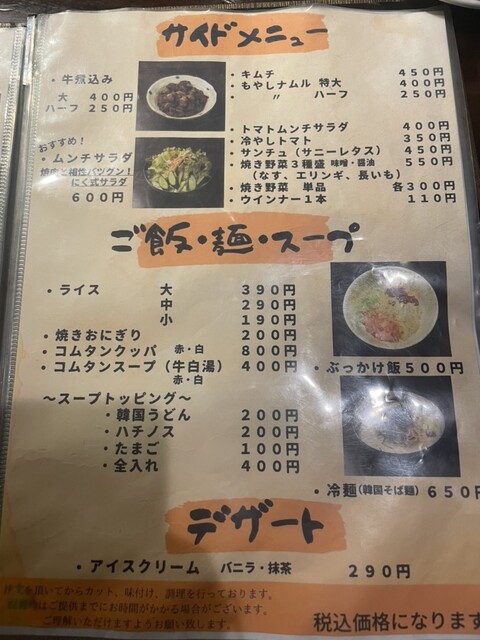 サイドメニュー
・牛煮込み
大 400円
ハーフ 250円
・キムチ 450円
・もやしナムル 特大 400円
・ 〃 ハーフ 250円
おすすめ!
・ムンチサラダ
焼肉と相性バツグン!
にく式サラダ
600円
・トマトムンチサラダ 400円
・冷やしトマト 350円
・サンチュ(サニーレタス) 450円
・焼き野菜3種盛 味噌・醤油 550円
(なす、エリンギ、長いも)
・焼き野菜 単品 各300円
・ウインナー1本 110円
ご飯・麺・スープ
・ライス 大 390円
中 290円
小 190円
・焼きおにぎり 200円
・コムタンクッパ 赤・白 800円
・コムタンスープ(牛白湯) 400円
赤・白
・ぶっかけ飯500円
~スープトッピング~
・韓国うどん 200円
・ハチノス 200円
・たまご 100円
・全入れ 400円
・冷麺(韓国そば麺) 650円
デザート
・アイスクリーム バニラ・抹茶 290円
を頂いてからカット、味付け、調理を行っております。
はご提供までにお時間がかかる場合がございます。
ご理解いただけますようお願い致します。
税込価格になります